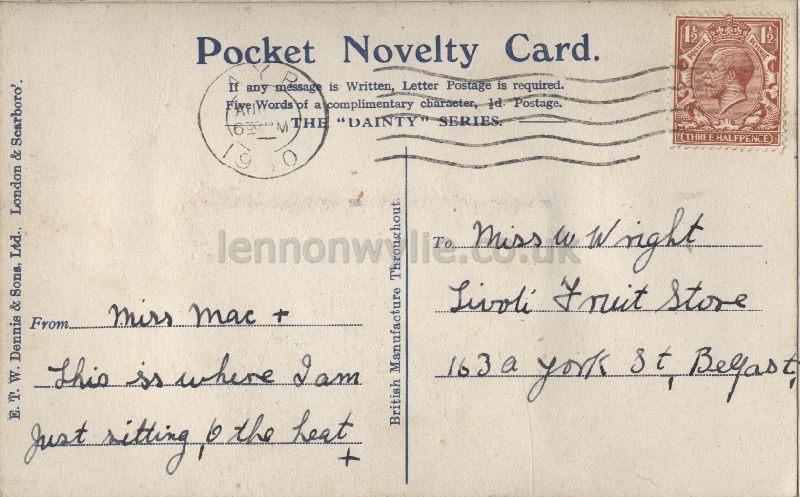 Pocket Novelty Card.
If any message is Written, Letter Postage is required.
Five Words of a complimentary character, ½d. Postage.
THE "DAINTY" SERIES.
AYR
AUG
6 30 PM
19 0
1½ 1½
POSTAGE REVENUE
THREE HALFPENCE
E. T. W. Dennis & Sons, Ltd., London & Scarboro'.
British Manufacture Throughout.
lennonwylie.co.uk
From Miss Mac +
This is where I am
Just sitting, O the heat
+
To Miss W Wright
Tivoli Fruit Store
163a York St, Belfast,